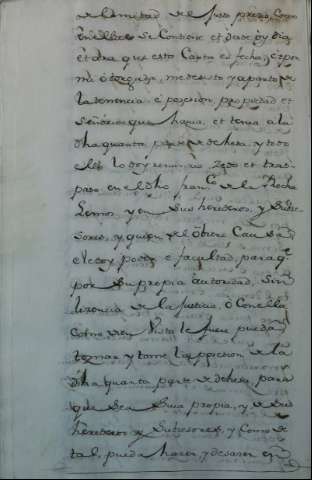 de la mitad del justo precio, como
en ellas se contiene et desde oy dia
et ora que esta Carta es fecha, é por
mi otorgada, me desisto y aparto de
la tenencia é posesion, propiedad et
Señorio que havia, et tenia a la
dha quarta parte de dehesa, y todo
ello lo doy renuncio zedo et tras
paso en el dho franco de la Rocha
Lemos, y en sus herederos, y Subce
sores, y quien de el obiere Causa
el doy poder é facultad, para q.
por su propia autoridad, sin
licencia de la Justicia, ó Con ella
como vien visto le fuere pueda
tomar y tome la posesion de la
dha quarta parte de dehesa, para
que sea suia propia, y de sus
herederos y Subcesores, y Como de
tal, pueda hacer y desacer en